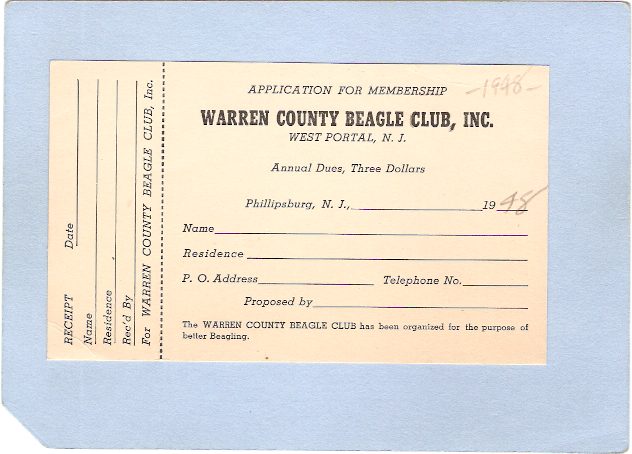 -1948-
APPLICATION FOR MEMBERSHIP
WARREN COUNTY BEAGLE CLUB, INC.
WEST PORTAL, N. J.
Annual Dues, Three Dollars
Phillipsburg, N. J., 1948
Name
Residence
P. O. Address Telephone No.
Proposed by
The WARREN COUNTY BEAGLE CLUB has been organized for the purpose of
better Beagling.
RECEIPT Date
Name
Residence
Rec'd By
For WARREN COUNTY BEAGLE CLUB, Inc.